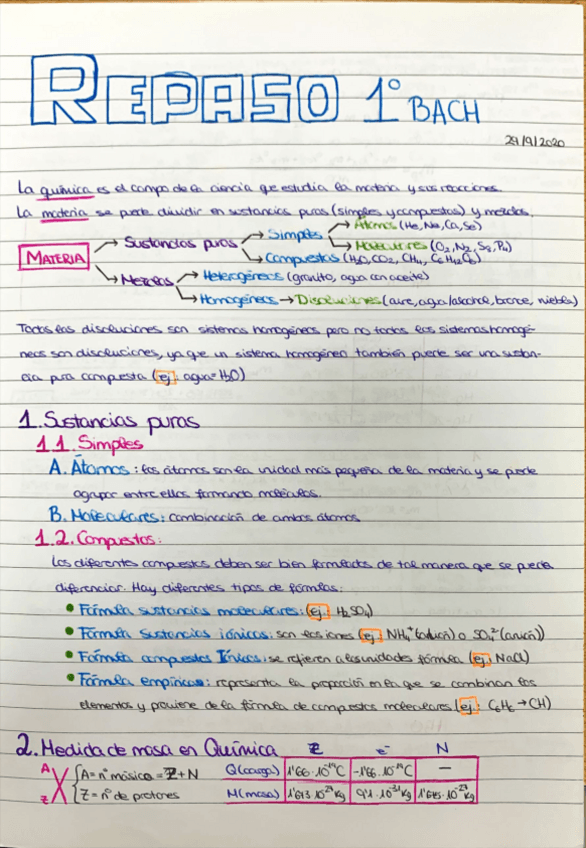 REPASO 1º BACH
29/9/2020
La química es el campo de la ciencia que estudia la materia y sus reacciones.
La materia se puede dividir en sustancias puras (simples y compuestos) y mezclas.
MATERIA → Sustancias puras → Simples → Átomos (He, Na, Ca, Se)
→ Moleculares (O2, N2, S8, P4)
→ Compuestos (H2O, CO2, CH4, C6H12O6)
→ Mezclas → Heterogéneas (granito, agua con aceite)
→ Homogéneas → Disoluciones (aire, agua/alcohol, bronce, niebla)
Todas las disoluciones son sistemas homogéneos pero no todos los sistemas homogé-
neos son disoluciones, ya que un sistema homogéneo también puede ser una sustan-
cia pura compuesta (ej: agua = H2O)
1. Sustancias puras
1.1. Simples
A. Átomos: los átomos son la unidad más pequeña de la materia y se puede
agrupar entre ellos formando moléculas.
B. Moleculares: combinación de ambos átomos
1.2. Compuestos:
Los diferentes compuestos deben ser bien formulados de tal manera que se pueda
diferenciar. Hay diferentes tipos de fórmulas:
• Fórmula sustancias moleculares: (ej: H2SO4)
• Fórmula Sustancias iónicas: son los iones (ej: NH4+ (catión) o SO4 2- (anión))
• Fórmula compuestos Iónicos: se refieren a las unidades fórmula (ej: NaCl)
• Fórmula empíricas: representa la proporción en la que se combinan los
elementos y proviene de la fórmula de compuestos moleculares (ej: C6H6 → CH)
2. Medida de masa en Química
Z e- N
A X Z { A = nº másico = Z + N
Z = nº de protones
Q (carga) 1'66·10-19 C -1'66·10-19 C —
M (masa) 1'673·10-27 Kg 9'1·10-31 Kg 1'675·10-27 Kg